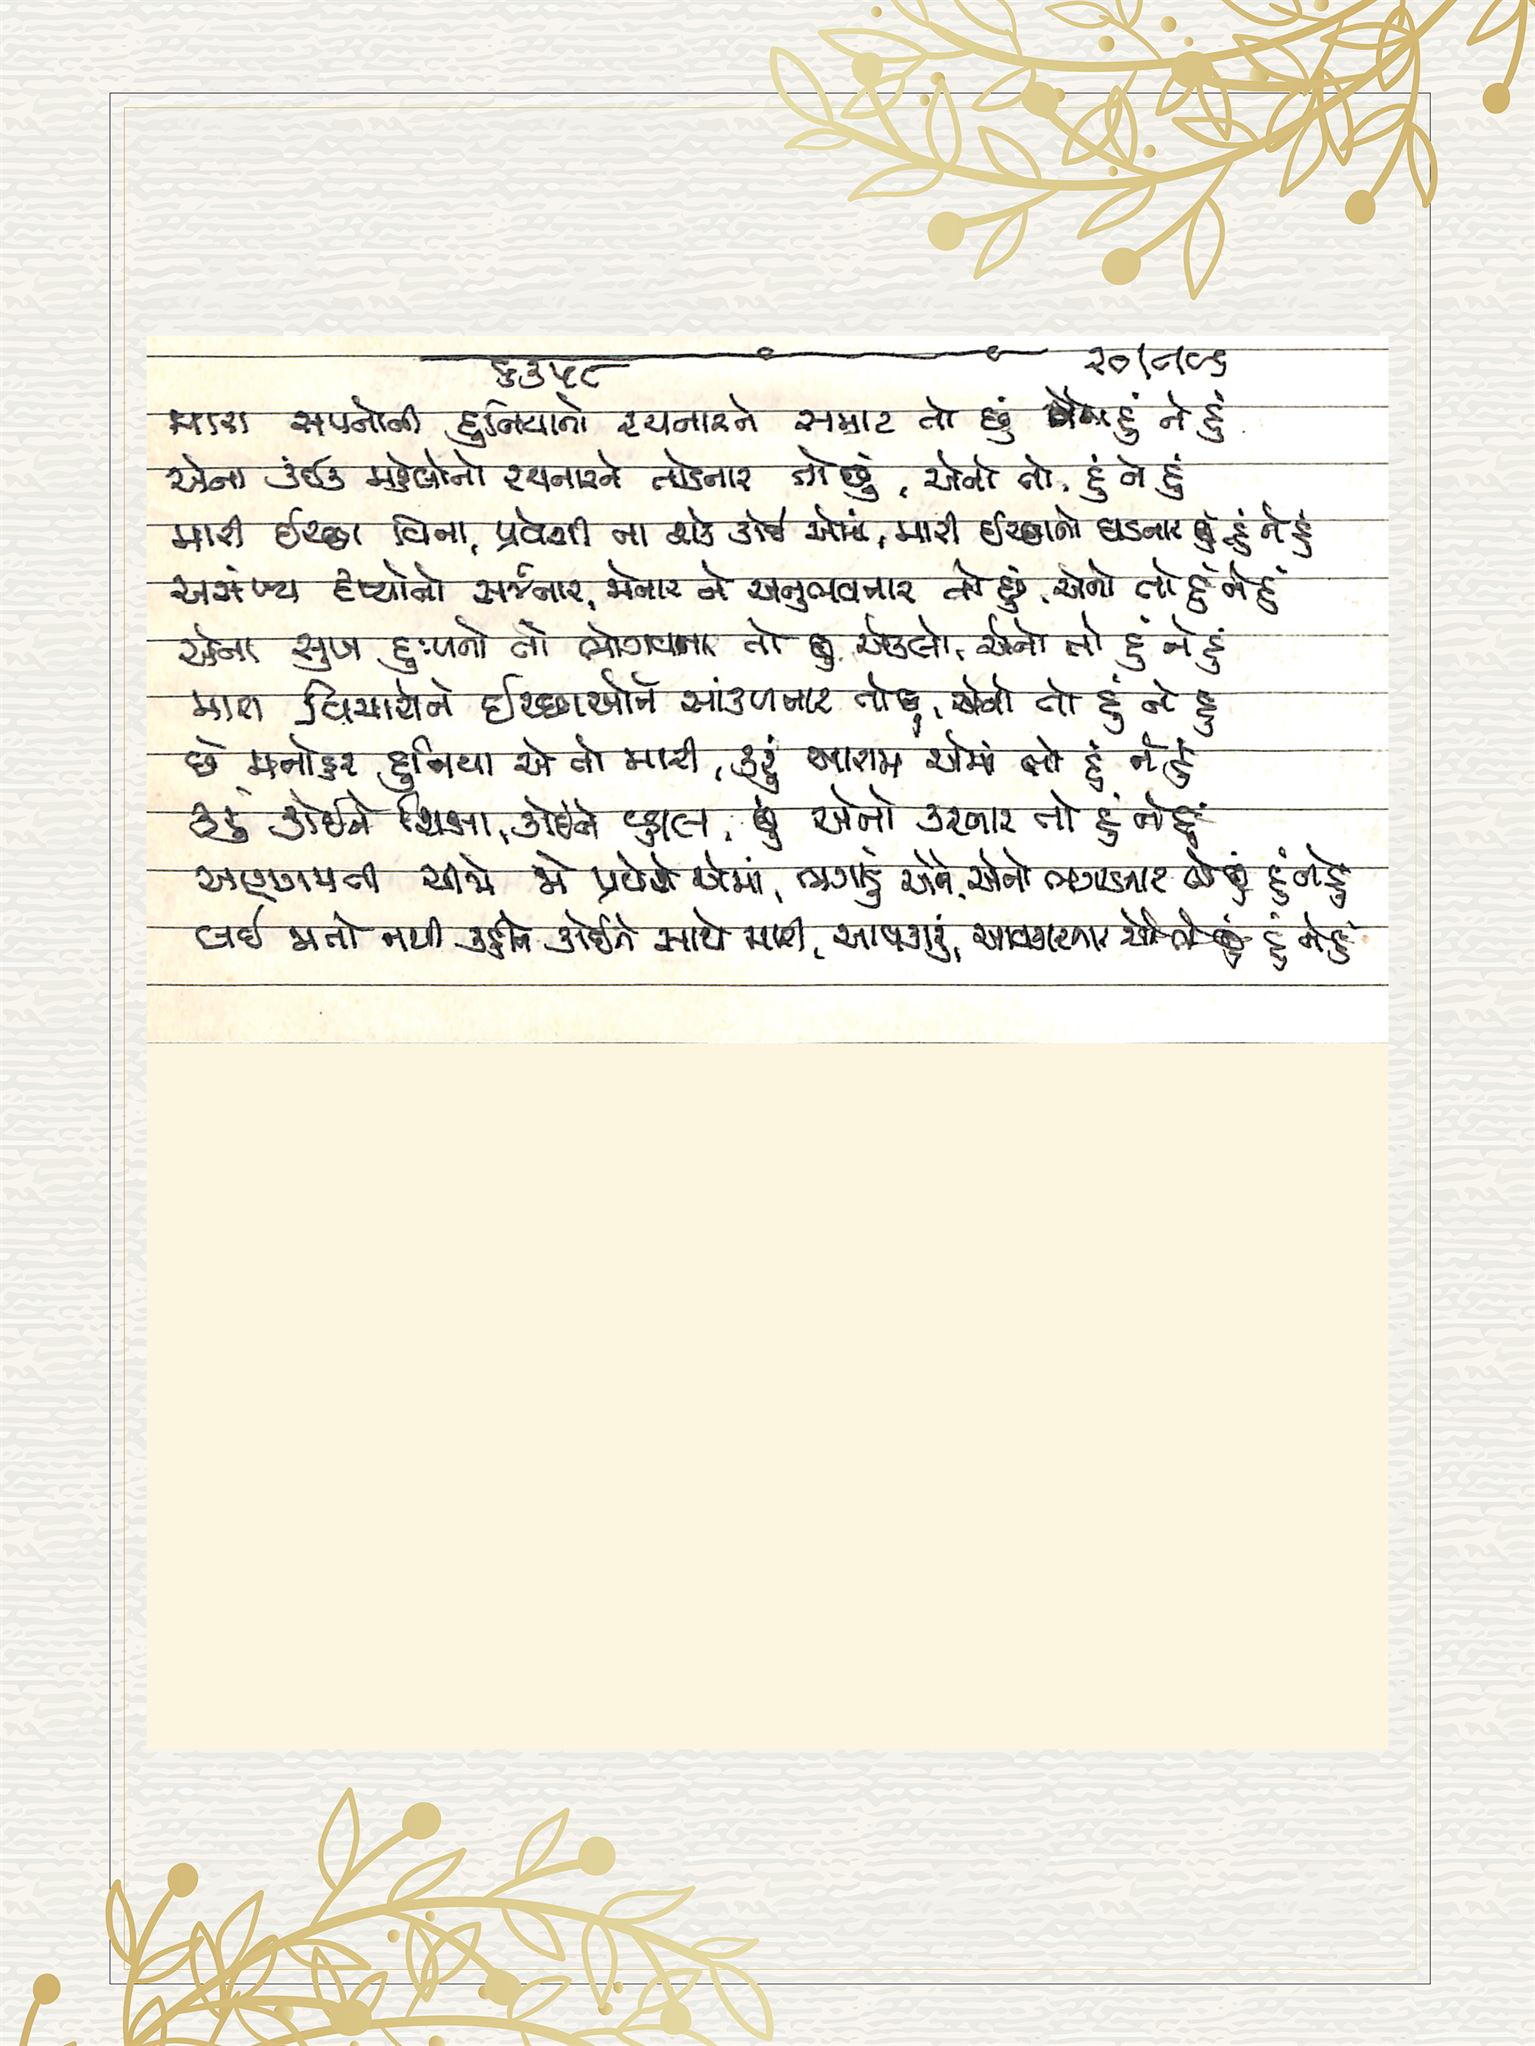 ૬૩૫૮
મારા સપનોની દુનિયાનો રચનારને સમ્રાટ તો છું હું ને હું
એના કંઈક મહેલોનો રચનારને તોડનાર તો છું, એનો તો, હું ને હું
મારી ઈચ્છા વિના, પ્રવેશી ના શકે કોઈ એમાં, મારી ઈચ્છાનો ઘડનાર છું હું ને હું
અસંખ્ય દૃશ્યોનો સર્જનાર, જોનાર ને અનુભવનાર તો છું, એનો તો હું ને હું
એના સુખ દુઃખનો તો ભોગવનાર તો છું એકલો, એનો તો હું ને હું
મારા વિચારોને ઈચ્છાઓને સાંકળનાર તો છું, એનો તો હું ને હું
છે મનોહર દુનિયા એ તો મારી, કરું આરામ એમાં તો હું ને હું
કરું કોઈને શિક્ષા, કોઈને વ્હાલ, છું એનો કરનાર તો હું ને હું
અણગમની ચીજો જો પ્રવેશે એમાં, ભગાડું એને, એનો ભગાડનાર તો છું હું ને હું
લઈ જાતો નથી કહીને કોઈને સાથે મારી, આવકારું, આવકારનાર એને તો છું હું ને હું